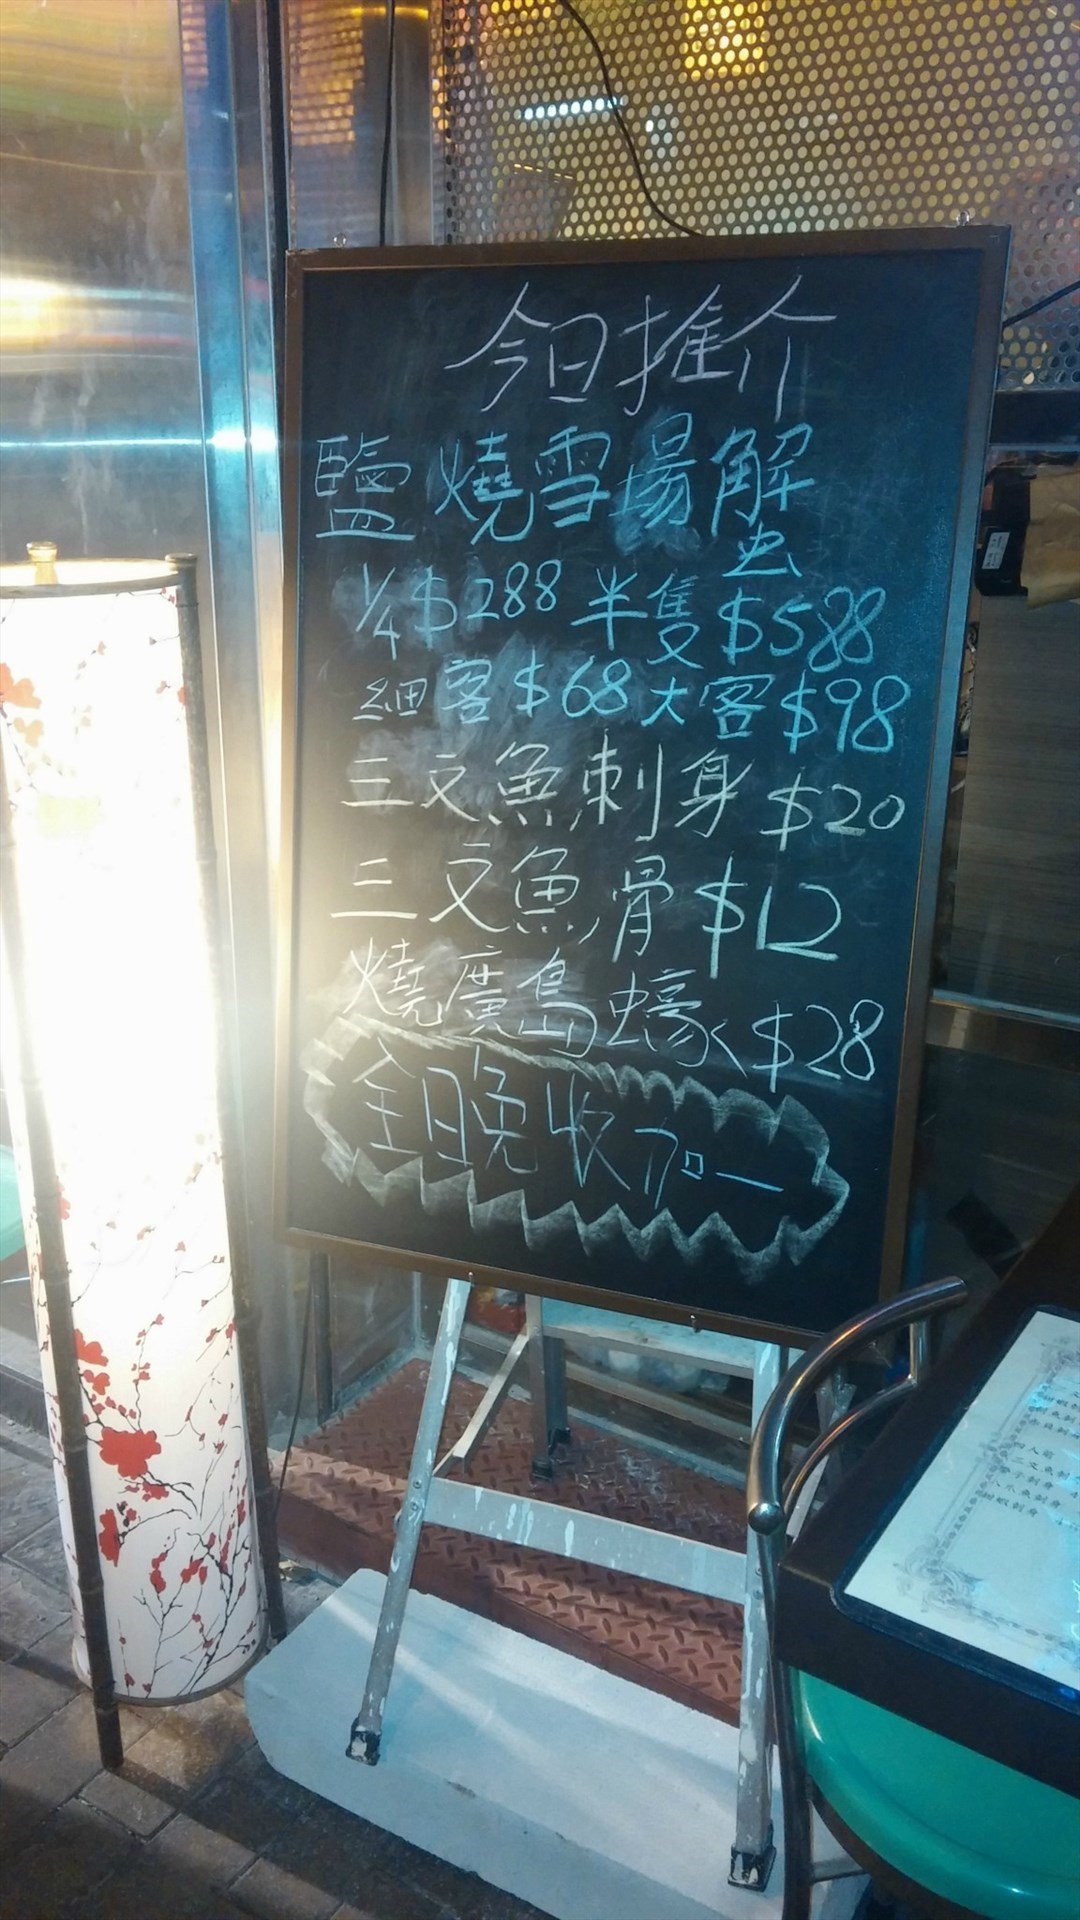 今日推介
鹽燒雪場解
虫
1/4 $288 半隻 $588
細客 $68 大客 $98
三文魚刺身 $20
三文魚骨 $12
燒廣島蠔 $28
全日晚收加一